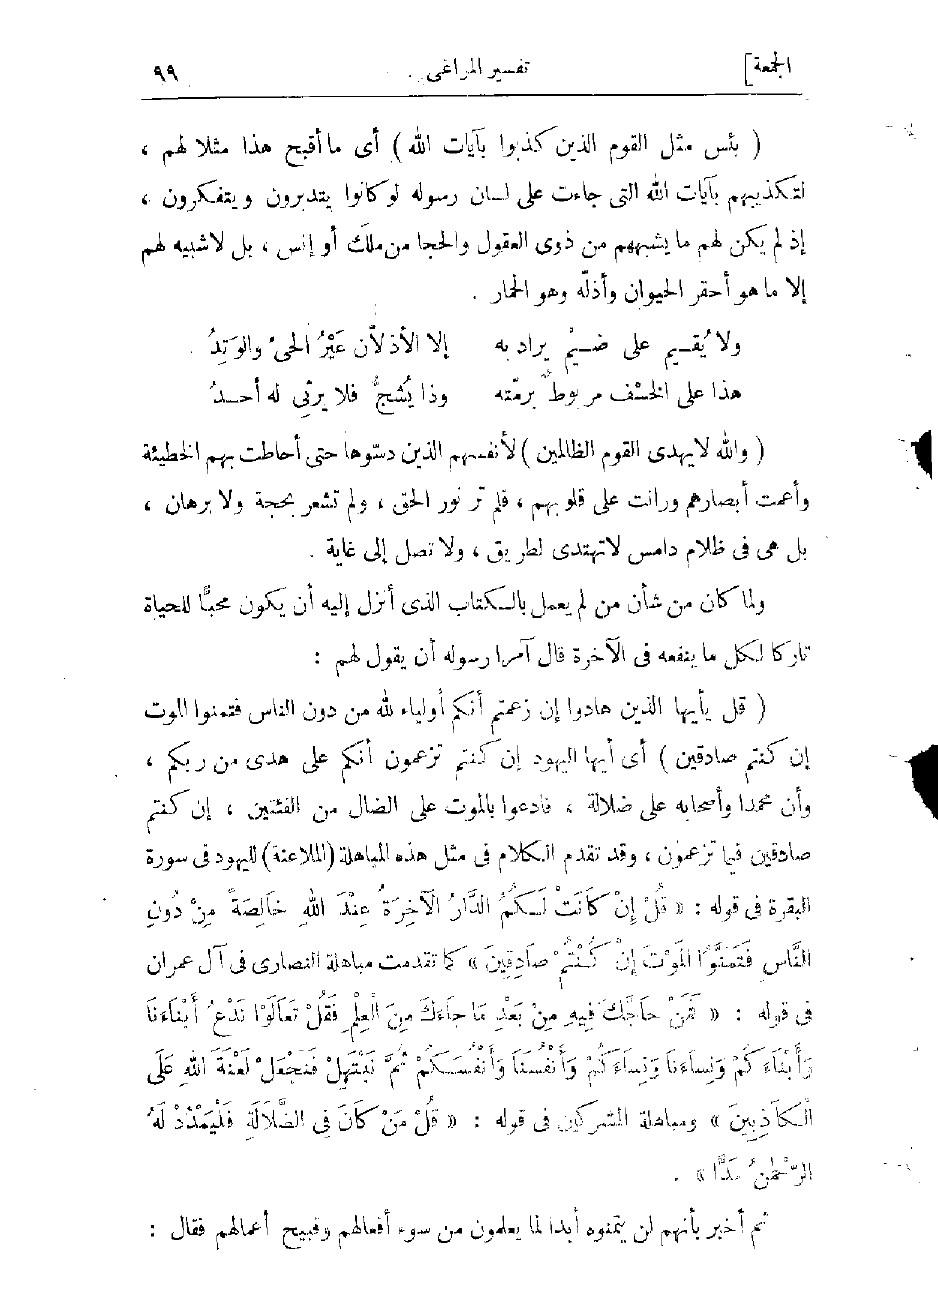 الجمعة] تفسير المراغى ٩٩
( بئس مثل القوم الذين كذبوا بآيات الله ) أى ما أقبح هذا مثلا لهم ،
لتكذيبهم بآيات الله التى جاءت على لسان رسوله لو كانوا يتدبرون ويتفكرون ،
إذ لم يكن لهم ما يشبههم من ذوى العقول والحجا من ملَك أو إنس ، بل لا شبيه لهم
إلا ما هو أحقر الحيوان وأذلّه وهو الحمار .
ولا يُقيم على ضيْم يراد به إلا الأذلاّن عَيْرُ الحىّ والوَتِدُ
هذا على الخسْف مربوط برمّته وذا يُشجُّ فلا يرثى له أحدُ
( والله لا يهدى القوم الظالمين ) لأنفسهم الذين دسّوها حتى أحاطت بهم الخطيئة
وأعمت أبصارهم ورانت على قلوبهم ، فلم تر نور الحق ، ولم تشعر بحجة ولا برهان ،
بل هى فى ظلام دامس لا تهتدى لطريق ، ولا تصل إلى غاية .
ولما كان من شأن من لم يعمل بالكتاب الذى أنزل إليه أن يكون محبًّا للحياة
تاركا لكل ما ينفعه فى الآخرة قال آمرا رسوله أن يقول لهم :
( قل يأيها الذين هادوا إن زعمتم أنكم أولياء لله من دون الناس فتمنوا الموت
إن كنتم صادقين ) أى أيها اليهود إن كنتم تزعمون أنكم على هدى من ربكم ،
وأن محمدا وأصحابه على ضلالة ، فادعوا بالموت على الضال من الفئتين ، إن كنتم
صادقين فيما تزعمون ، وقد تقدم الكلام فى مثل هذه المباهلة (الملاعنة) لليهود فى سورة
البقرة فى قوله : « قُلْ إِنْ كَانَتْ لَكُمُ الدَّارُ الْآخِرَةُ عِنْدَ اللهِ خَالِصَةً مِنْ دُونِ
النَّاسِ فَتَمَنَّوُا الْمَوْتَ إِنْ كُنْتُمْ صَادِقِينَ » كما تقدمت مباهلة النصارى فى آل عمران
فى قوله : « فَمَنْ حَاجَّكَ فِيهِ مِنْ بَعْدِ مَا جَاءَكَ مِنَ الْعِلْمِ فَقُلْ تَعَالَوْا نَدْعُ أَبْنَاءَنَا
وَأَبْنَاءَكُمْ وَنِسَاءَنَا وَنِسَاءَكُمْ وَأَنْفُسَنَا وَأَنْفُسَكُمْ ثُمَّ نَبْتَهِلْ فَنَجْعَلْ لَعْنَةَ اللهِ عَلَى
الْكَاذِبِينَ » ومباهلة المشركين فى قوله : « قُلْ مَنْ كَانَ فِى الضَّلَالَةِ فَلْيَمْدُدْ لَهُ
الرَّحْمَنُ مَدًّا » .
ثم أخبر بأنهم لن يتمنوه أبدا لما يعلمون من سوء أفعالهم وقبيح أعمالهم فقال :